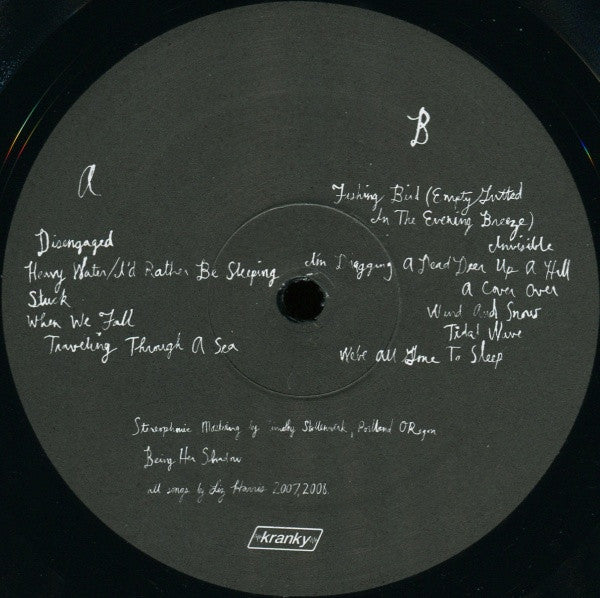 A
Disengaged
Heavy Water/I'd Rather Be Sleeping
Stuck
When We Fall
Traveling Through A Sea
B
Fishing Bird (Empty Gutted
In The Evening Breeze)
Invisible
I'm Dragging A Dead Deer Up A Hill
A Cover Over
Wind And Snow
Tidal Wave
We're All Gone To Sleep
Stereophonic Mastering by Timothy Stollenwerk, Portland ORegon
Being Her Shadow
all songs by Liz Harris 2007, 2008.
kranky